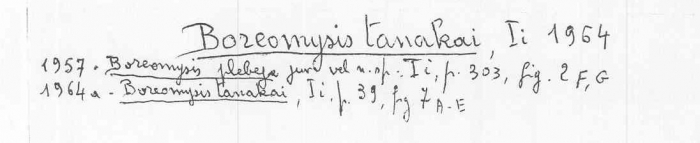 Boreomysis tanakai, Ii 1964
1957 - Boreomysis plebeja juv. vel n. sp.: Ii, p. 303, fig. 2 F, G
1964a - Boreomysis tanakai, Ii, p. 39, fig 7 A-E